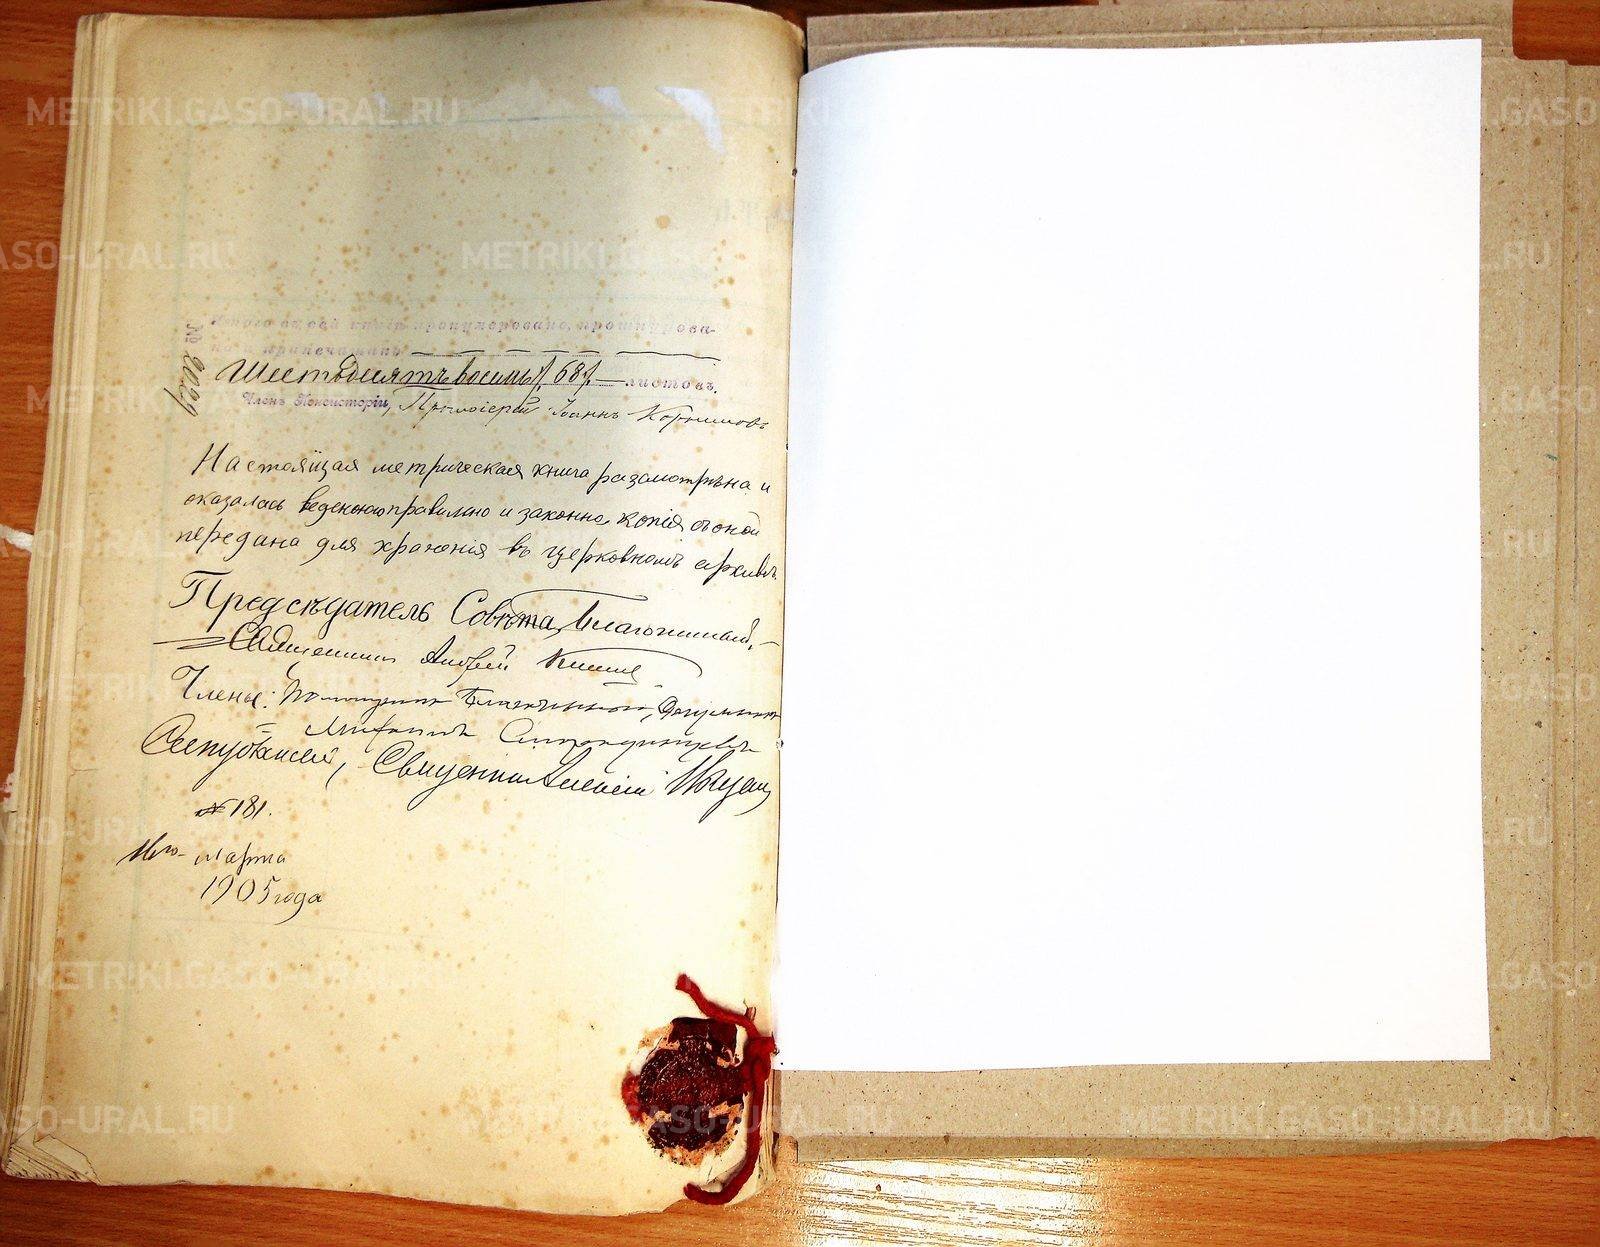 METRIKI.GASO-URAL.RU
Итого въ сей книгѣ пронумеровано, прошнурова-
но и припечатано
№ 2029
Шестьдесятъ восемь /68/ листовъ.
Членъ Консисторіи, Протоіерей Іоаннъ
Настоящая метрическая книга разсмотрѣна и
оказалась веденною правильно и законно, копія съ оной
передана для храненія въ церковномъ архивѣ.
Предсѣдатель Совѣта, Благочинный,
Священникъ Андрей
Члены: Помощникъ Благочиннаго,
Священникъ Алексій
№ 181.
марта
1905 года